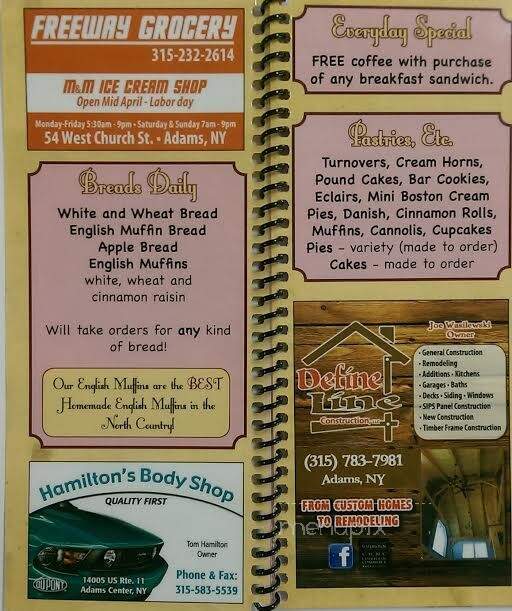 FREEWAY GROCERY
315-232-2614
M&M ICE CREAM SHOP
Open Mid April - Labor day
Monday-Friday 5:30am - 9pm • Saturday & Sunday 7am - 9pm
54 West Church St. • Adams, NY
Breads Daily
White and Wheat Bread
English Muffin Bread
Apple Bread
English Muffins
white, wheat and
cinnamon raisin
Will take orders for any kind
of bread!
Our English Muffins are the BEST
Homemade English Muffins in the
North Country!
Hamilton's Body Shop
QUALITY FIRST
Tom Hamilton
Owner
DUPONT
14005 US Rte. 11
Adams Center, NY
Phone & Fax:
315-583-5539
Everyday Special
FREE coffee with purchase
of any breakfast sandwich.
Pastries, Etc.
Turnovers, Cream Horns,
Pound Cakes, Bar Cookies,
Eclairs, Mini Boston Cream
Pies, Danish, Cinnamon Rolls,
Muffins, Cannolis, Cupcakes
Pies - variety (made to order)
Cakes - made to order
Joe Wasilewski
Owner
Define
Line
Construction
• General Construction
• Remodeling
• Additions • Kitchens
• Garages • Baths
• Decks • Siding • Windows
• SIPS Panel Construction
• New Construction
• Timber Frame Construction
(315) 783-7981
Adams, NY
FROM CUSTOM HOMES
TO REMODELING
f
menupix